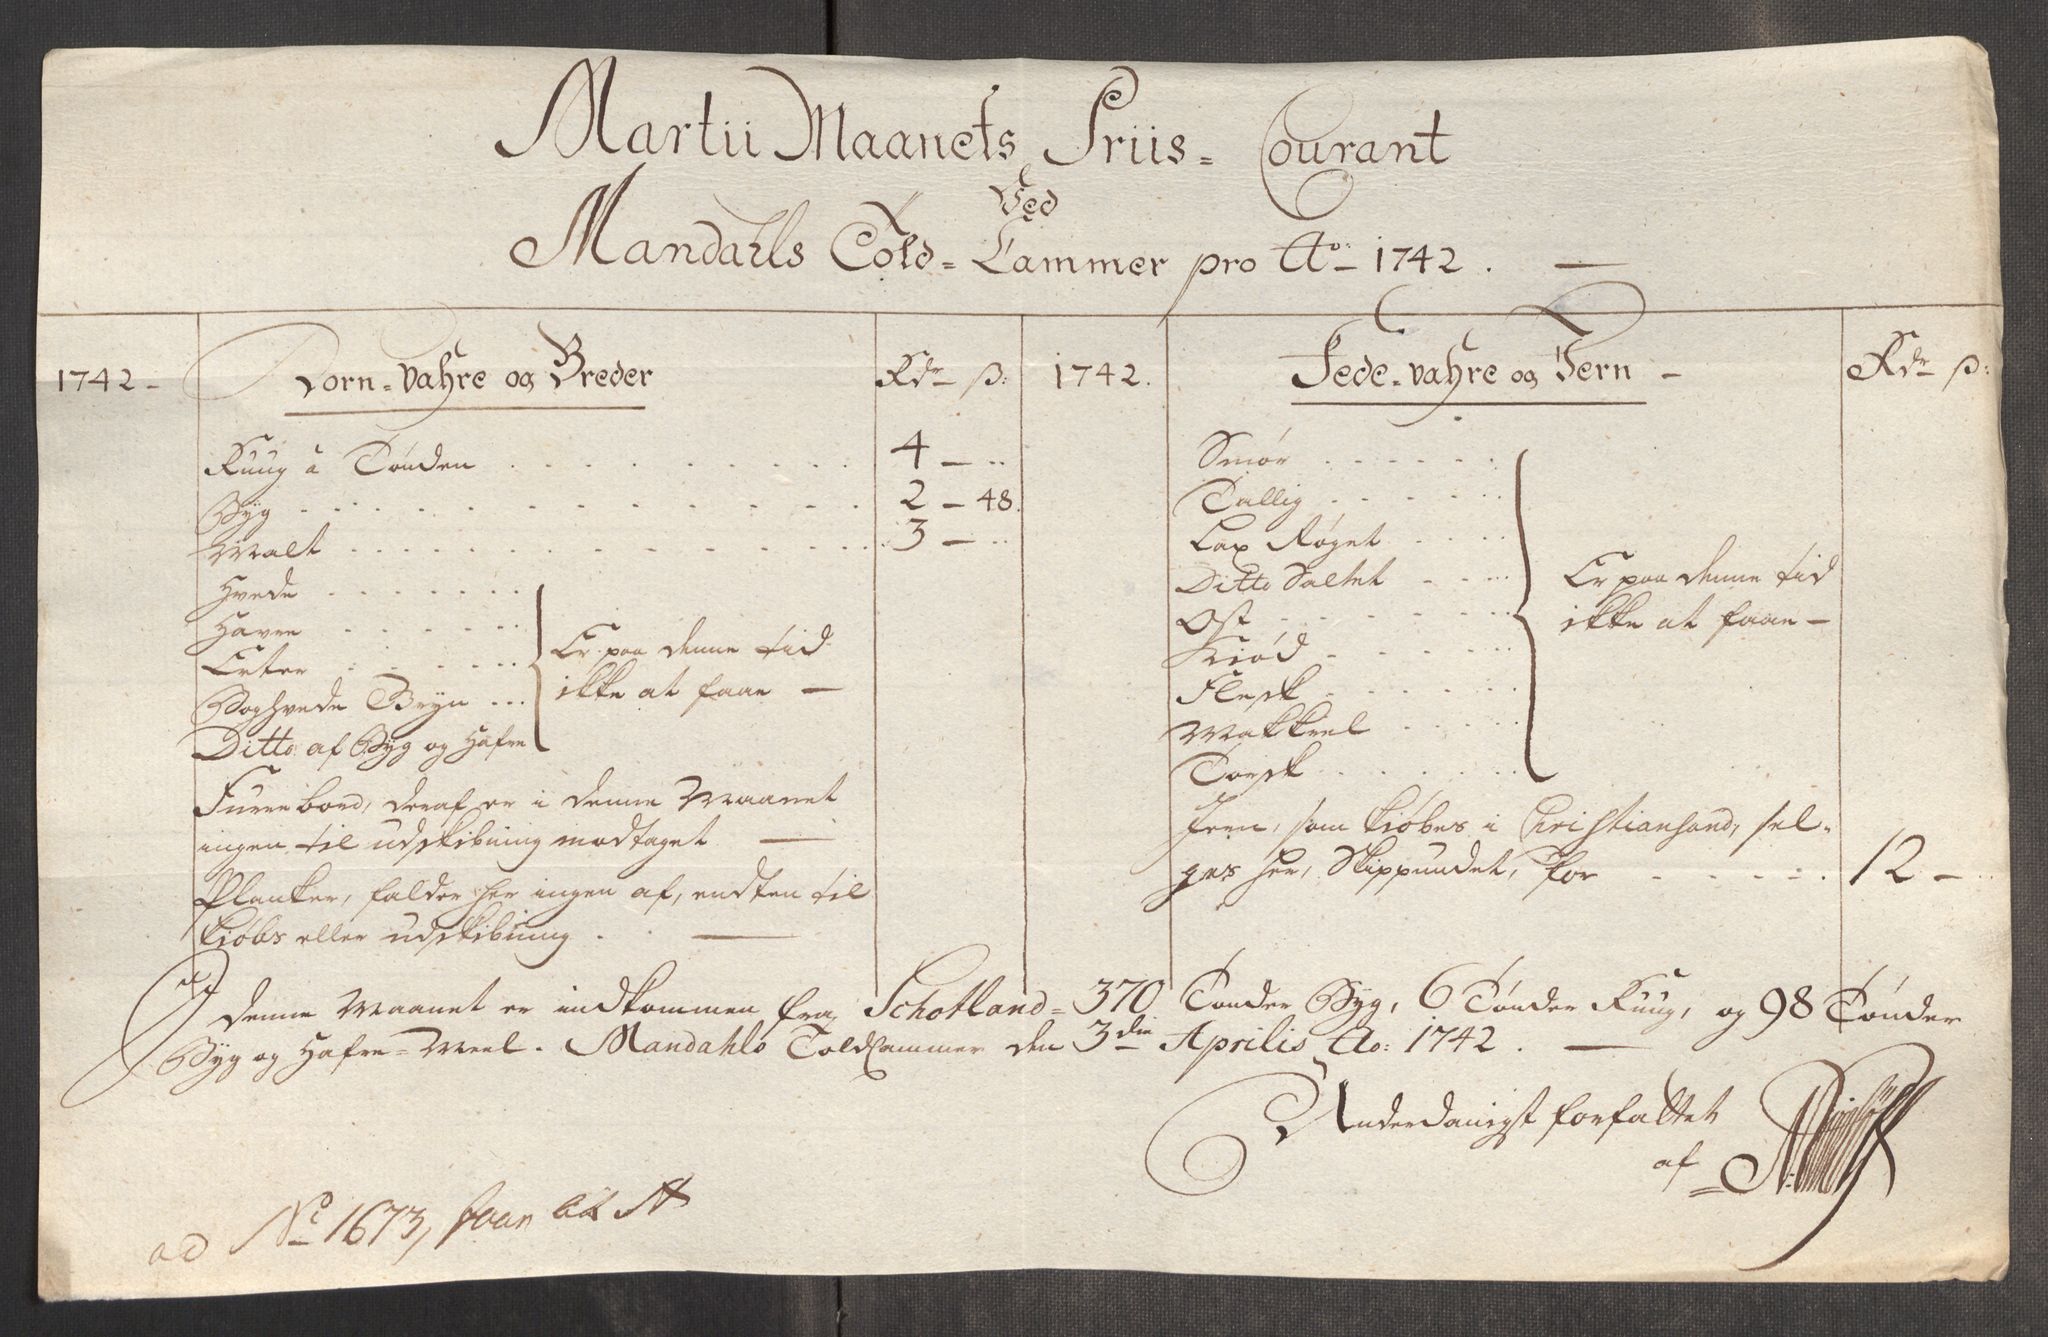 Martii Maanets Priis= Courant
Ved
Mandahls Told=Cammer pro Ao 1742. —
1742 –
Korn=Vahre og Breder
Rdr ß:
Ruug â Tønden . . . . . . . 4 – ..
Byg . . . . . . . 2 – 48.
Malt . . . . . . . 3 – ..
Hvede . . . . . . .
Havre . . . . . .
Erter . . . . .
Boghvede Gryn ...
Ditto af Byg og Hafre
Er paa denne tid
ikke at faae —
Furre bord, deraf er i denne Maanet
ingen til udskibning modtaget —
Planker, falder her ingen af, endten til
kiøbs eller udskibning . . —
1742.
Fede-vahre og Jern –
Rdr ß:
Smør . . . . . .
Tallig . . . . . .
Lax Røget . . . .
Ditto Saltet . . . .
Ost . . . . . .
Kiød . . . . . .
Flesk . . . . . .
Makkrel . . . . .
Torsk . . . . . .
Er paa denne tid
ikke at faae —
Jern, som kiøbes i Christiansand, sel-
ges her, Skippundet, for . . . . . 12 – ..
I denne Maanet er indkommen fra Schotland= 370 Tønder Byg, 6 Tønder Ruug, og 98 Tønder
Byg og Hafre=Meel. Mandahls ToldCammer den 3die Aprilis Ao: 1742. —
Underdanigst forfattet
af =
ad No 1673,